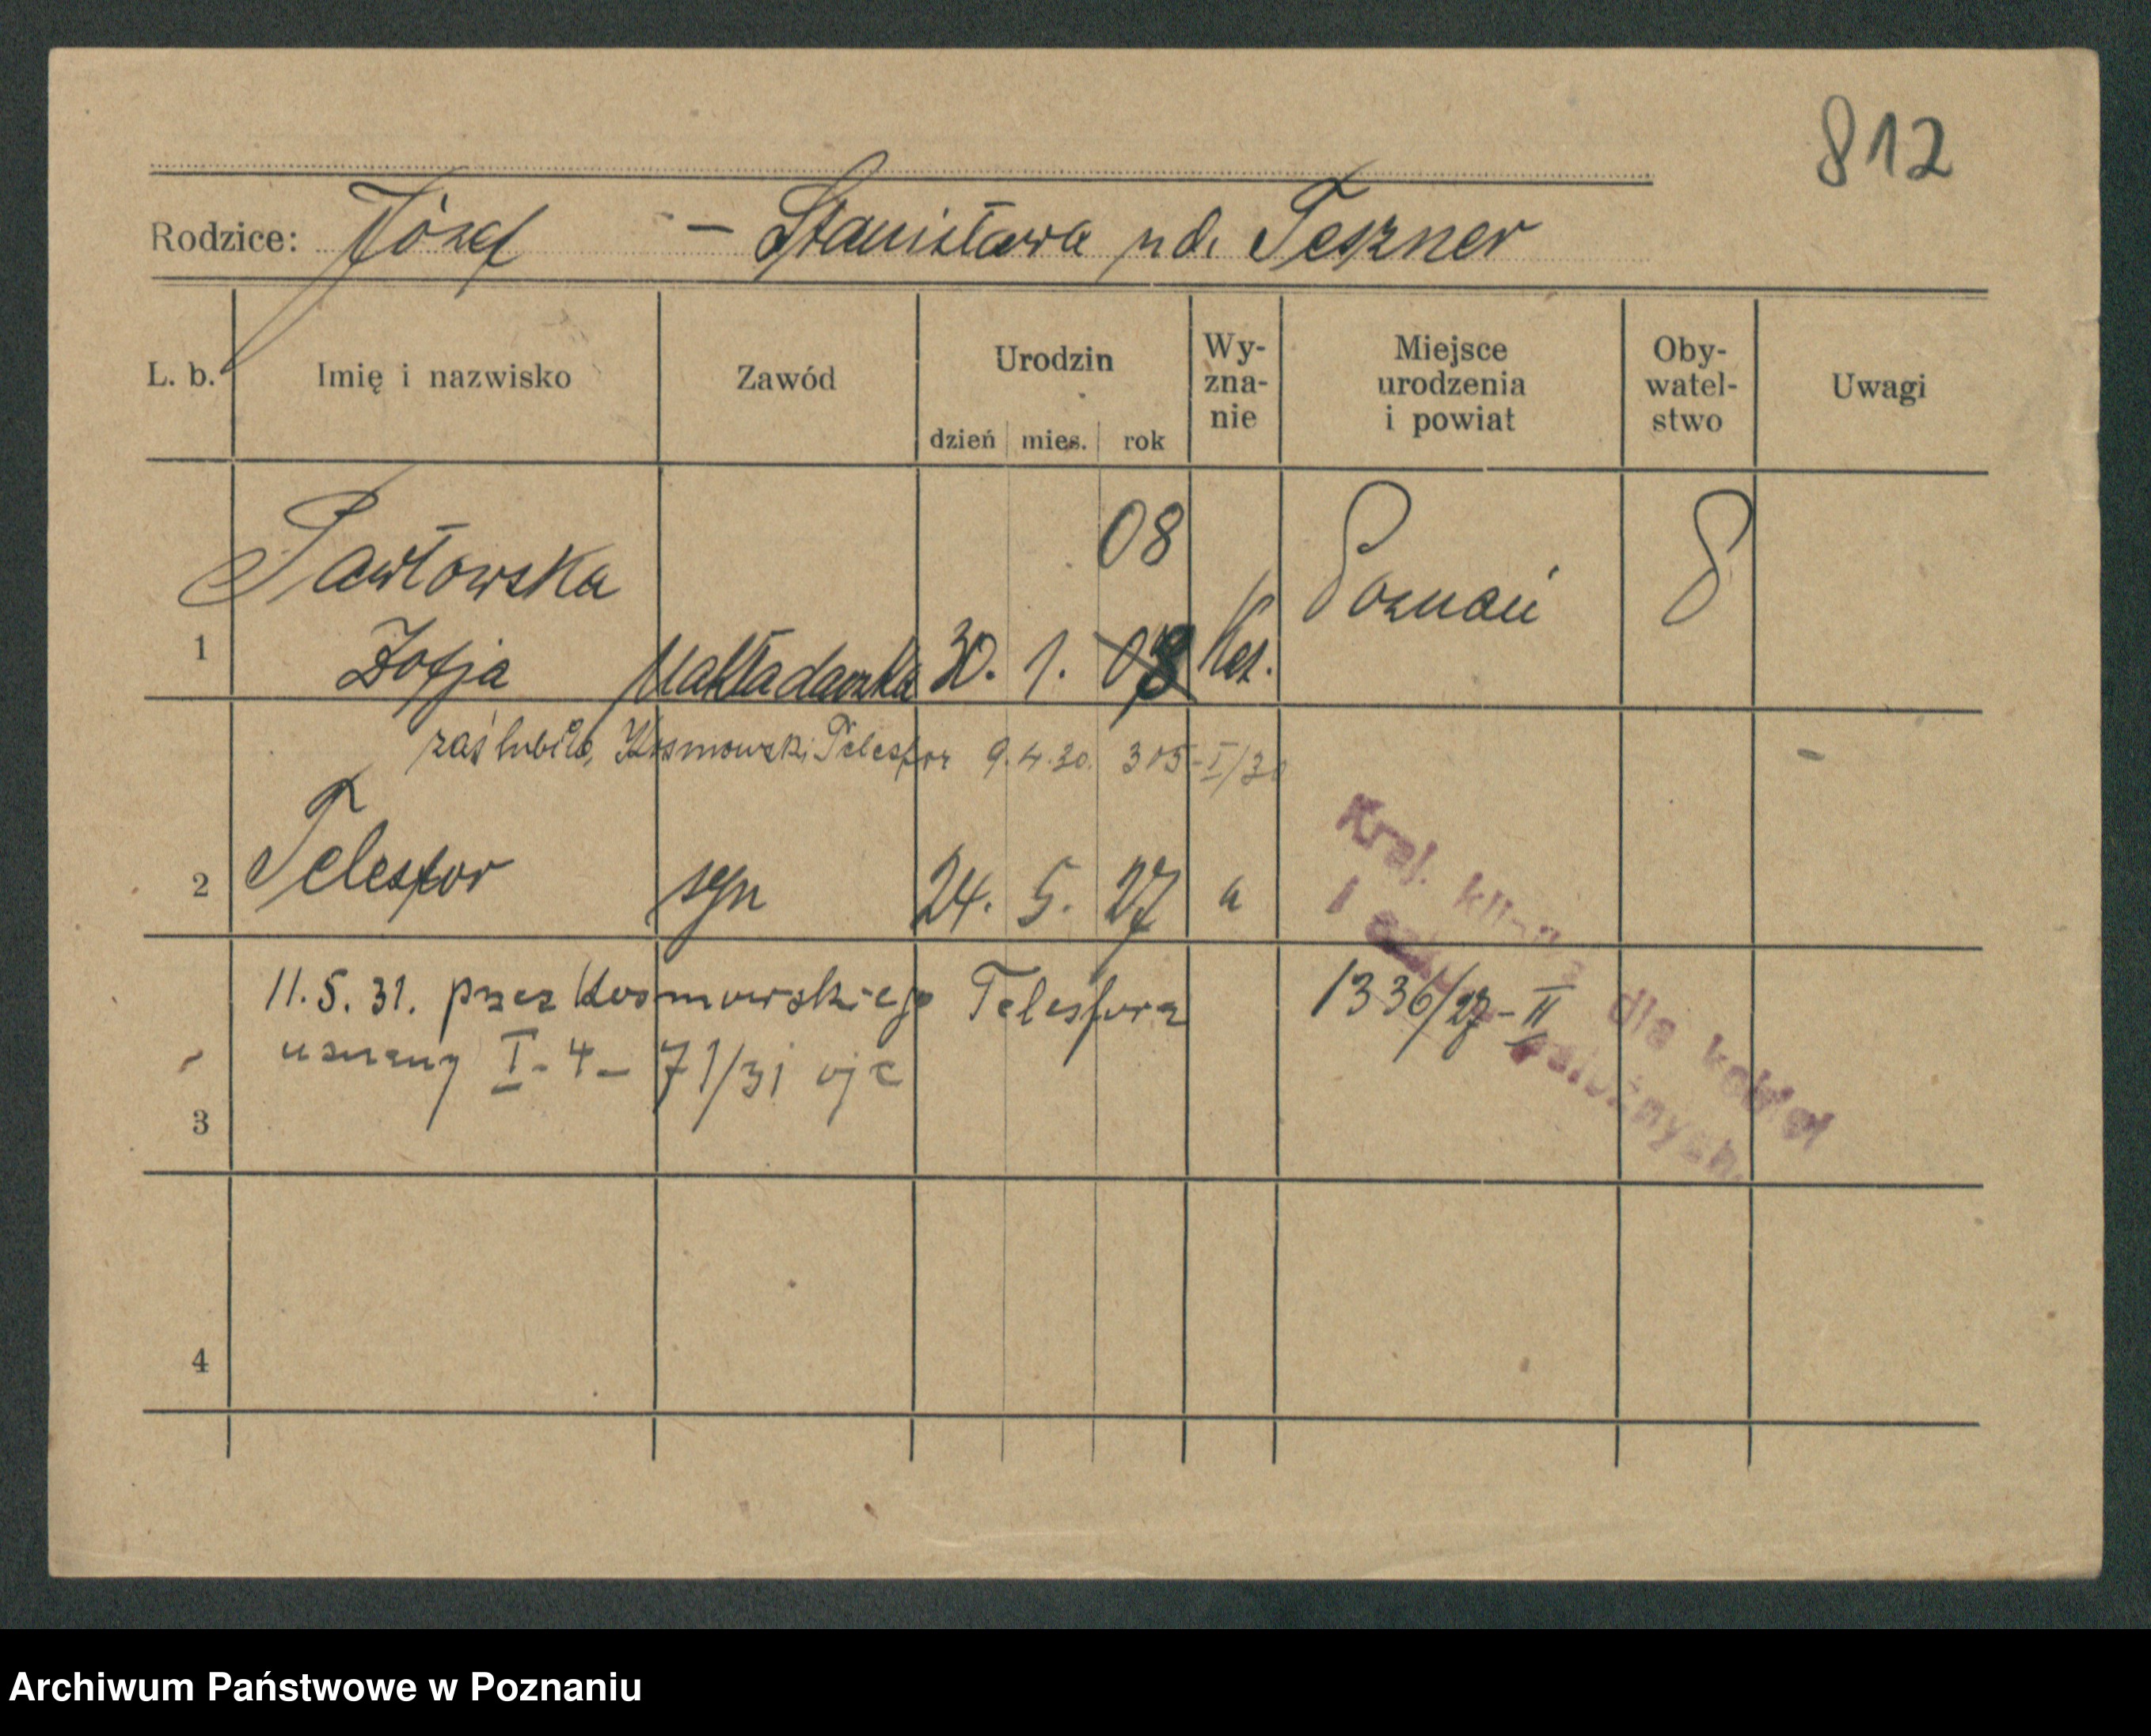 812
Rodzice: Józef – Stanisława zd. Teszner
L. b. Imię i nazwisko Zawód Urodzin dzień mies. rok Wy-zna-nie Miejsce urodzenia i powiat Oby-watel-stwo Uwagi
08
Pawłowska Poznań
1 Zofja Nakładaczka 30. 1. 08 Kat.
zaślubiła, Kosmowski Telesfor 9.4.30. 305-I/30
2 Telesfor syn 24. 5. 27 "
11.5.31. przez Kosmowskiego Telesfora 1336/27-II
uznany I-4-71/31 ojc
3
4
Kraj. klinika dla kobiet
i położnych.
Archiwum Państwowe w Poznaniu